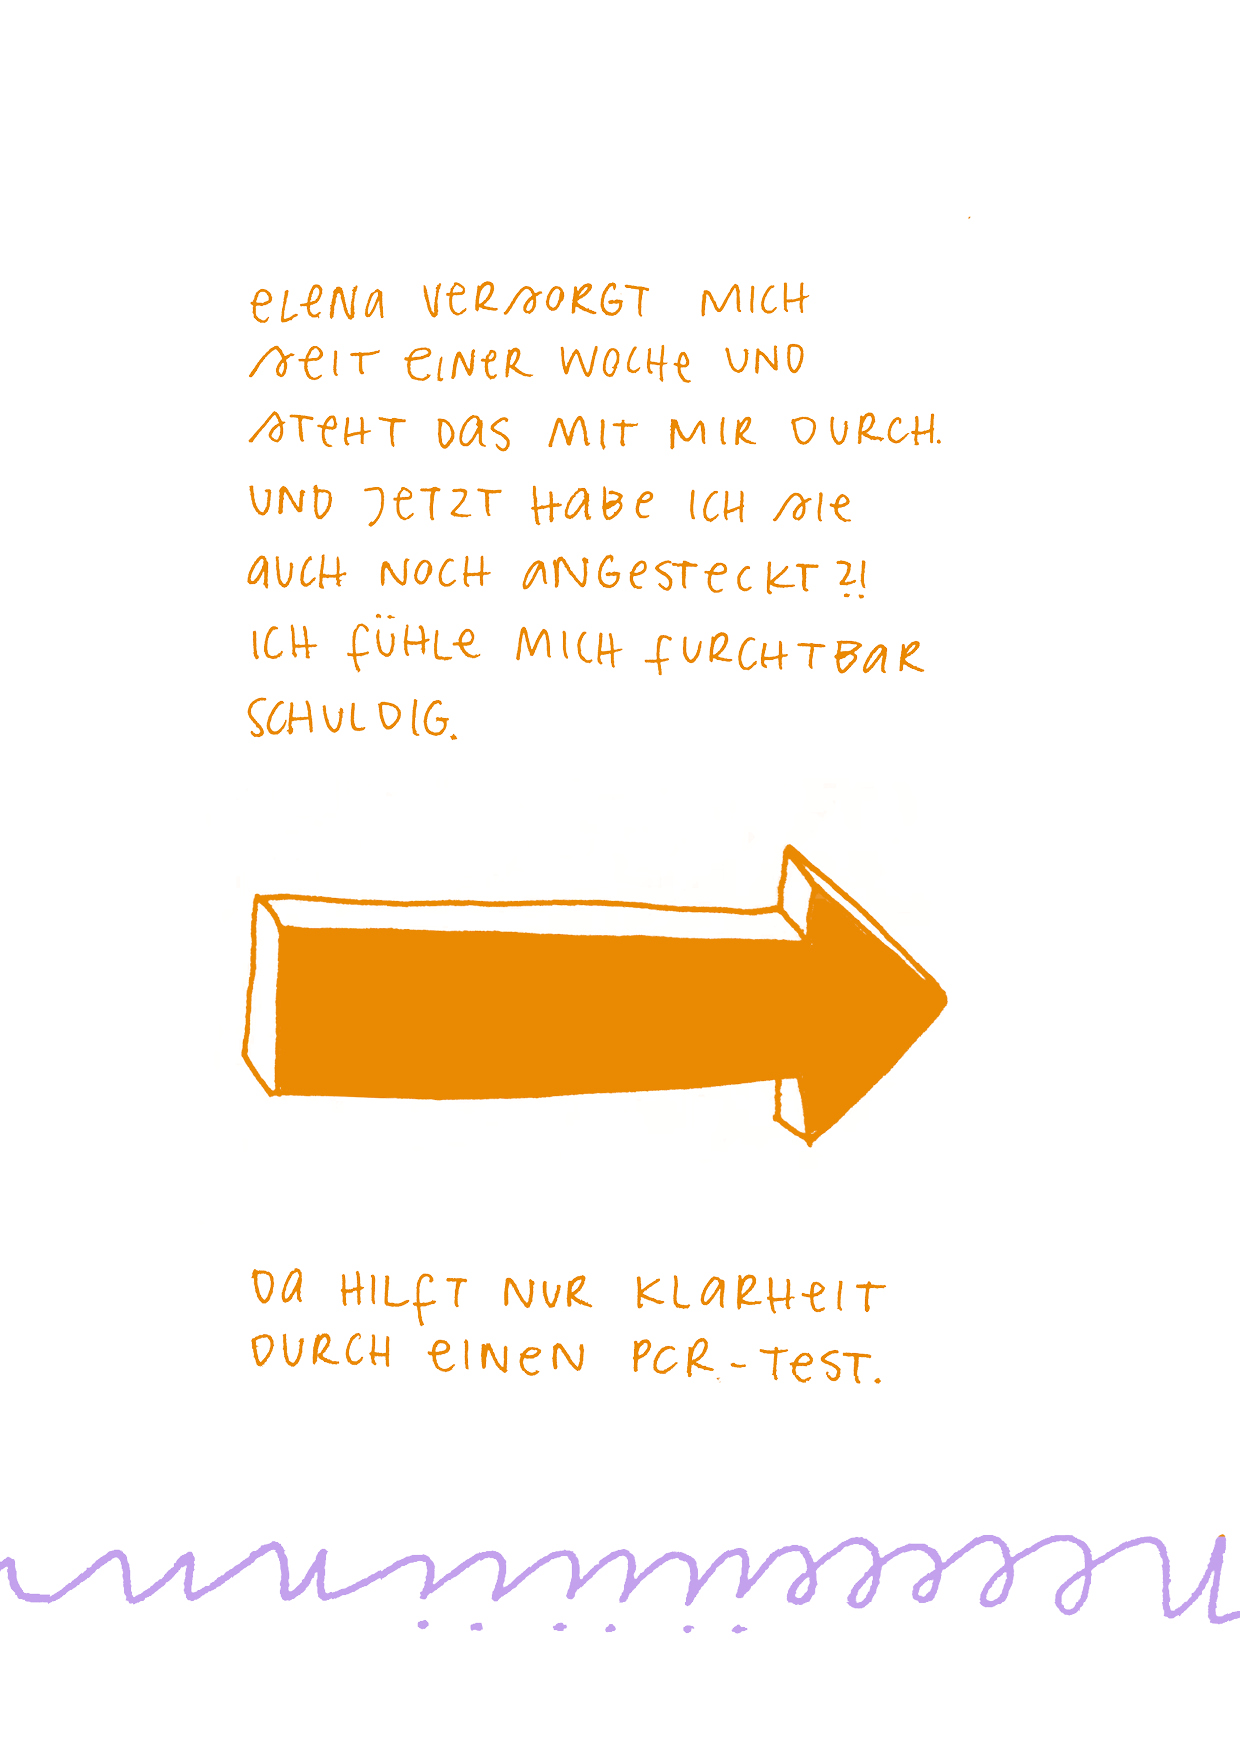 ELENA VERSORGT MICH
SEIT EINER WOCHE UND
STEHT DAS MIT MIR DURCH.
UND JETZT HABE ICH SIE
AUCH NOCH ANGESTECKT?!
ICH FÜHLE MICH FURCHTBAR
SCHULDIG.
DA HILFT NUR KLARHEIT
DURCH EINEN PCR-TEST.